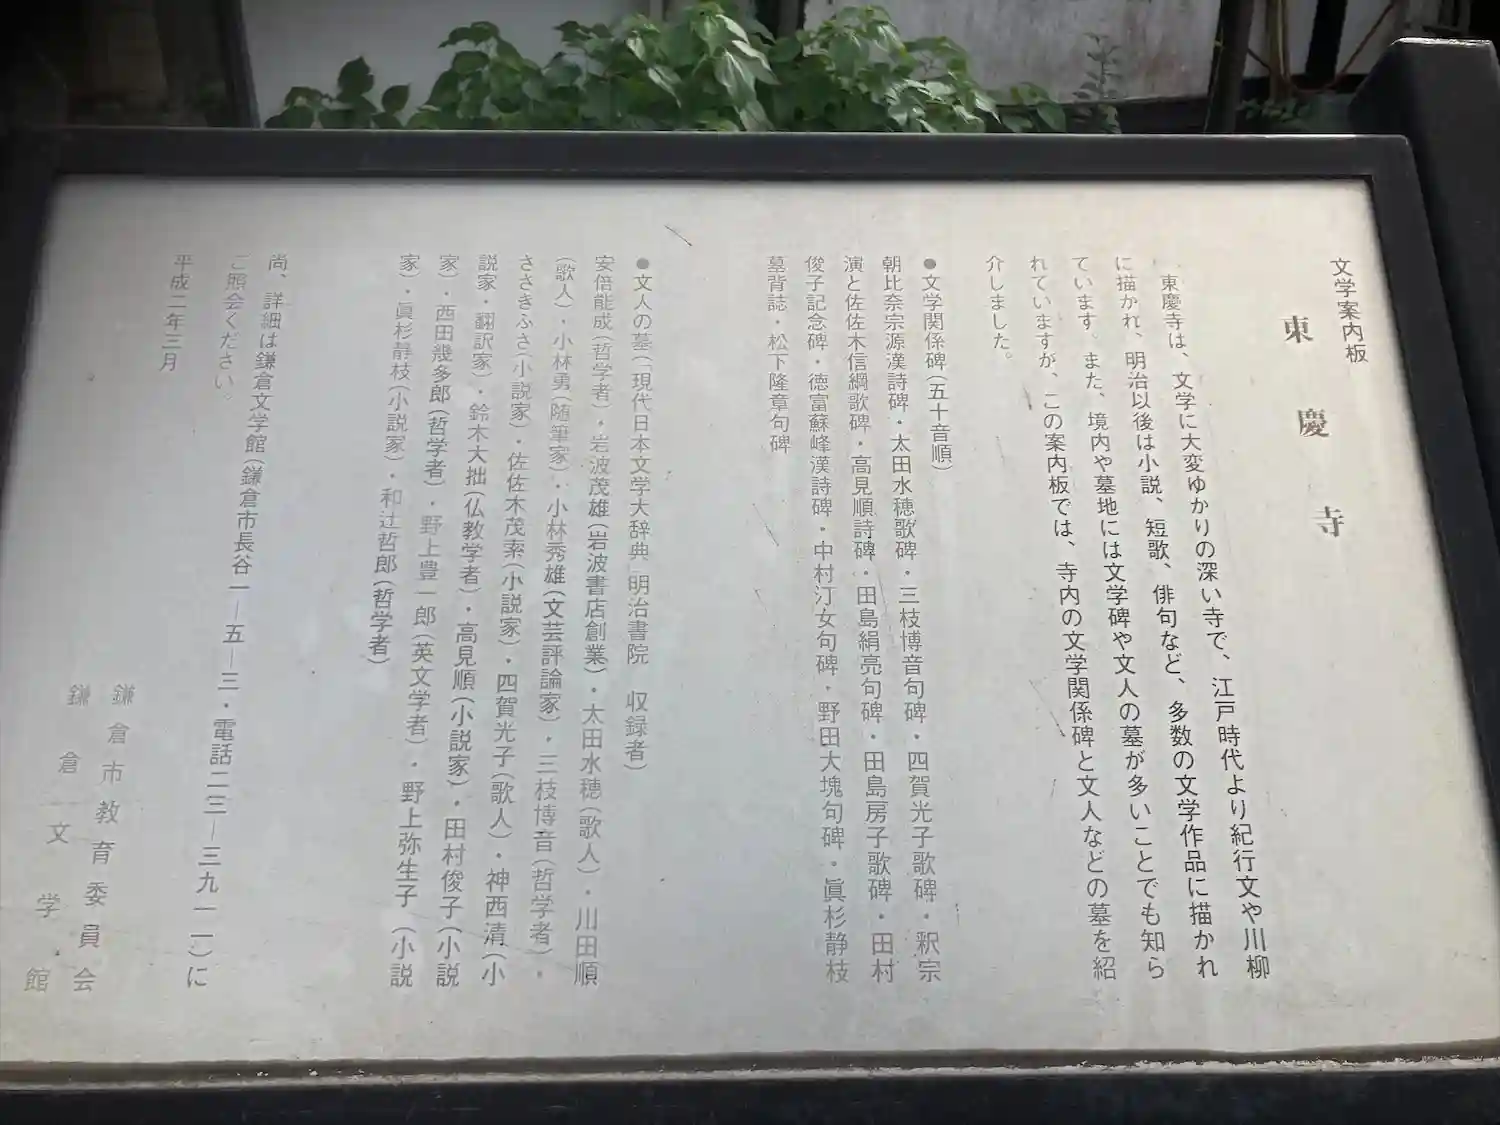 文学案内板
東慶寺
東慶寺は、文学に大変ゆかりの深い寺で、江戸時代より紀行文や川柳
に描かれ、明治以後は小説、短歌、俳句など、多数の文学作品に描かれ
ています。また、境内や墓地には文学碑や文人の墓が多いことでも知ら
れていますが、この案内板では、寺内の文学関係碑と文人などの墓を紹
介しました。
●文学関係碑(五十音順)
朝比奈宗源漢詩碑・太田水穂歌碑・三枝博音句碑・四賀光子歌碑・釈宗
演と佐佐木信綱歌碑・高見順詩碑・田島絹亮句碑・田島房子歌碑・田村
俊子記念碑・徳富蘇峰漢詩碑・中村汀女句碑・野田大塊句碑・眞杉静枝
墓背誌・松下隆章句碑
●文人の墓(「現代日本文学大辞典」明治書院 収録者)
安倍能成(哲学者)・岩波茂雄(岩波書店創業)・太田水穂(歌人)・川田順
(歌人)・小林勇(随筆家)・小林秀雄(文芸評論家)・三枝博音(哲学者)・
ささきふさ(小説家)・佐佐木茂索(小説家)・四賀光子(歌人)・神西清(小
説家・翻訳家)・鈴木大拙(仏教学者)・高見順(小説家)・田村俊子(小説
家)・西田幾多郎(哲学者)・野上豊一郎(英文学者)・野上弥生子(小説
家)・眞杉静枝(小説家)・和辻哲郎(哲学者)
尚、詳細は鎌倉文学館(鎌倉市長谷一―五―三・電話二三―三九一一)に
ご照会ください。
平成二年三月
鎌倉市教育委員会
鎌倉文学館